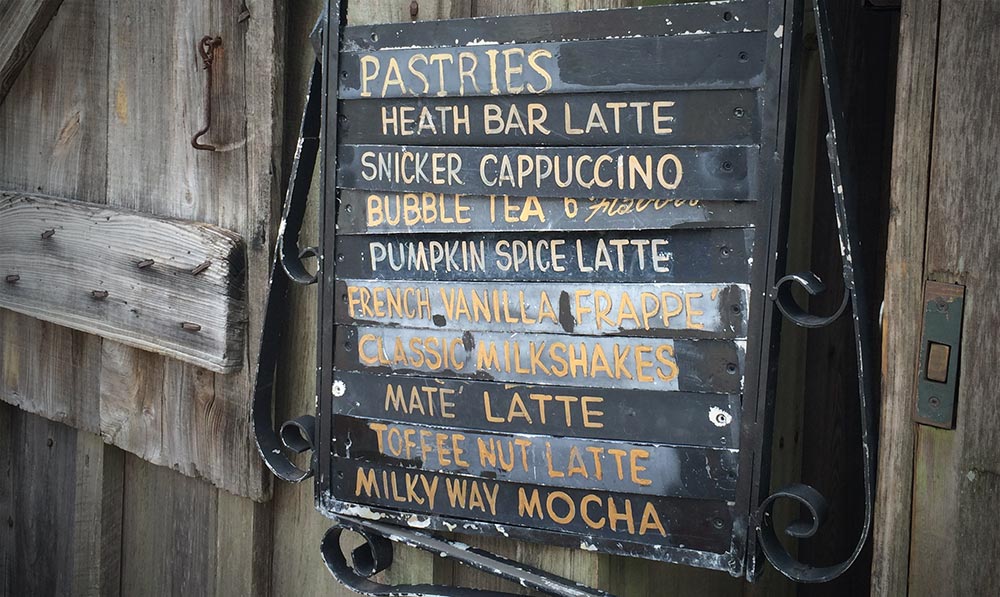 PASTRIES
HEATH BAR LATTE
SNICKER CAPPUCCINO
BUBBLE TEA 6 Flavors
PUMPKIN SPICE LATTE
FRENCH VANILLA FRAPPE'
CLASSIC MILKSHAKES
MATE' LATTE
TOFFEE NUT LATTE
MILKY WAY MOCHA